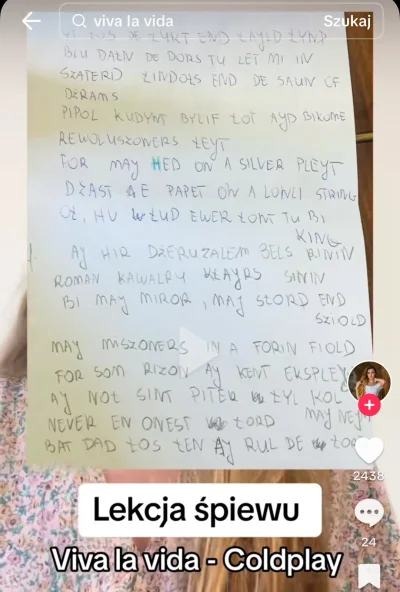 viva la vida
Szukaj
DE ŁYKT END ŁAJLD ŁYND
BLU DAŁN DE DORS TU LET MI IN
SZATERD ŁINDOŁS END DE SAUN OF
DŻRAMS
PIPOL KUDYNT BYLIF ŁOT AYD BIKOME
REWOLUSZONERS ŁEYT
FOR MAY HED ON A SILVER PLEYT
DŻAST A E PAPET ON A LONLI STRING
OŁ, HU WŁUD EWER ŁONT TU BI
KING
AY HIR DŻERUZALEM BELS RININ
ROMAN KAWALRY KŁAYRS SININ
BI MAY MIROR, MAJ SŁORD END
SZIOLD
MAY MISZONERS IN A FORIN FIOLD
FOR SOM RIZON AY KENT EKSPLEY
AY NOŁ SINT PITER ŁYL KOL
MAY NEYM
NEVER EN ONEST ŁORD
BAT DAD ŁOS ŁEN AY RUL DE
2438
24
Lekcja śpiewu
Viva la vida - Coldplay